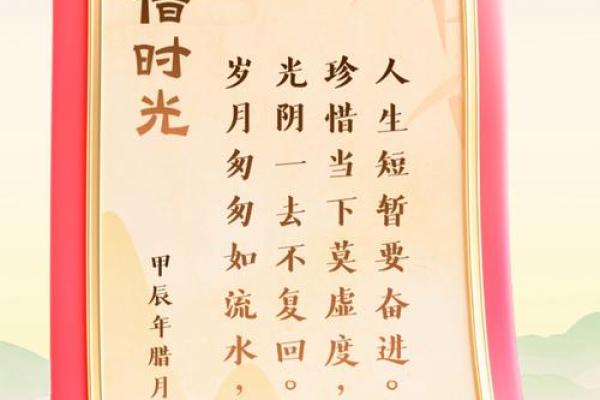 惜时光
岁月匆匆如流水，
光阴一去不复回。
珍惜当下莫虚度，
人生短暂要奋进。
甲辰年腊月